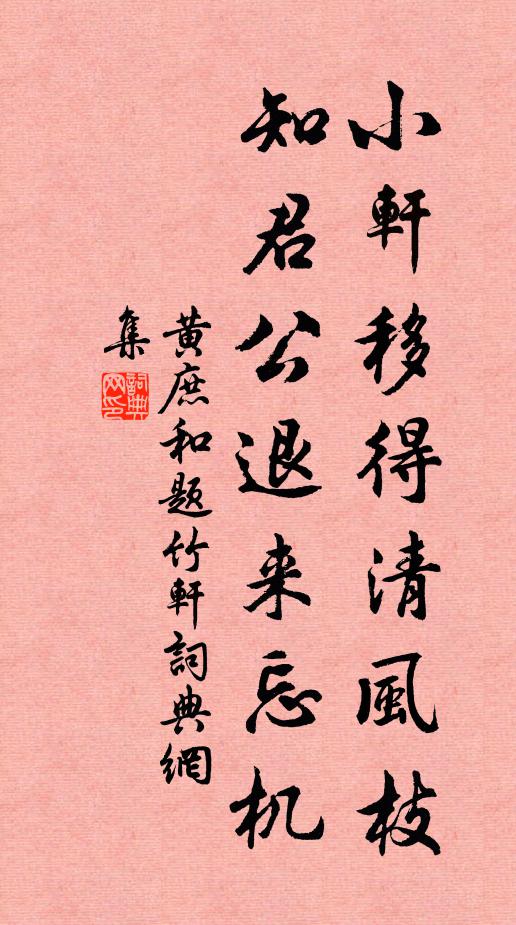 小軒移得清風枝
知君公退来忘机
黄庶和题竹軒詞典網
集
詞典网印